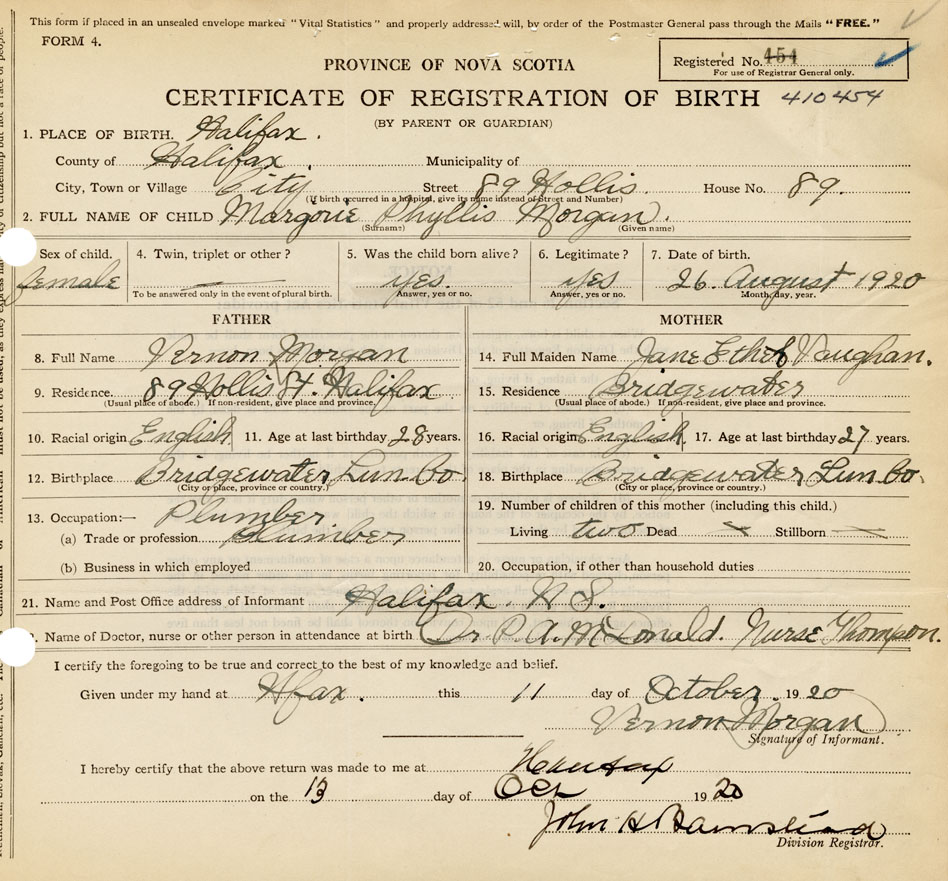 This form if placed in an unsealed envelope marked "Vital Statistics" and properly addressed will, by order of the Postmaster General pass through the Mails "FREE."
FORM 4.
Registered No. 454
For use of Registrar General only.
PROVINCE OF NOVA SCOTIA
CERTIFICATE OF REGISTRATION OF BIRTH 410454
(BY PARENT OR GUARDIAN)
1. PLACE OF BIRTH. Halifax.
County of Halifax. Municipality of
City, Town or Village City Street 89 Hollis. House No. 89.
(If birth occurred in a hospital, give its name instead of Street and Number)
2. FULL NAME OF CHILD Margorie Phyllis Morgan.
(Surname) (Given name)
Sex of child. 4. Twin, triplet or other? 5. Was the child born alive? 6. Legitimate? 7. Date of birth.
female yes. yes 26. August 1920
To be answered only in the event of plural birth. Answer, yes or no. Answer, yes or no. Month, day, year.
FATHER MOTHER
8. Full Name Vernon Morgan 14. Full Maiden Name Jane Ethel Vaughan.
9. Residence. 89 Hollis St. Halifax 15. Residence Bridgewater
(Usual place of abode.) If non-resident, give place and province. (Usual place of abode.) If non-resident, give place and province.
10. Racial origin English 11. Age at last birthday 28 years. 16. Racial origin English. 17. Age at last birthday 27 years.
12. Birthplace Bridgewater, Lun. Co. 18. Birthplace Bridgewater, Lun. Co.
(City or place, province or country.) (City or place, province or country.)
13. Occupation:— Plumber 19. Number of children of this mother (including this child.)
(a) Trade or profession Plumber Living two Dead Stillborn
(b) Business in which employed 20. Occupation, if other than household duties
21. Name and Post Office address of Informant Halifax. N.S.
Name of Doctor, nurse or other person in attendance at birth. Dr. P. A. McDonald. Nurse Thompson.
I certify the foregoing to be true and correct to the best of my knowledge and belief.
Given under my hand at Hfax. this 11 day of October. 1920
Vernon Morgan
Signature of Informant.
I hereby certify that the above return was made to me at Halifax
on the 13 day of Oct 1920
John H
Division Registrar.